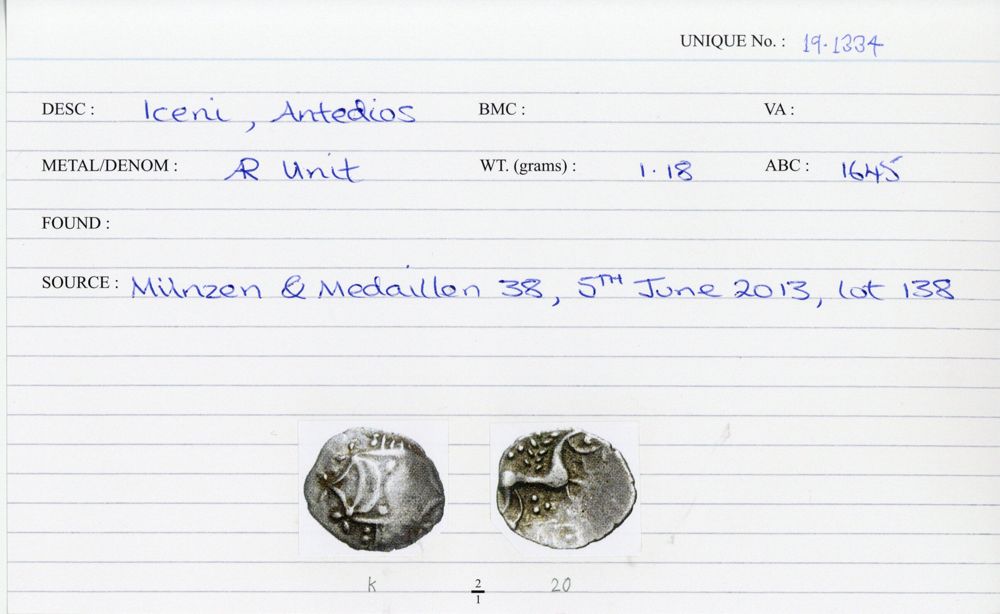 UNIQUE No. : 19.1334
DESC : Iceni, Antedios BMC : VA :
METAL/DENOM : AR Unit WT. (grams) : 1.18 ABC : 1645
FOUND :
SOURCE : Münzen & Medaillen 38, 5TH June 2013, lot 138
K 2/1 20